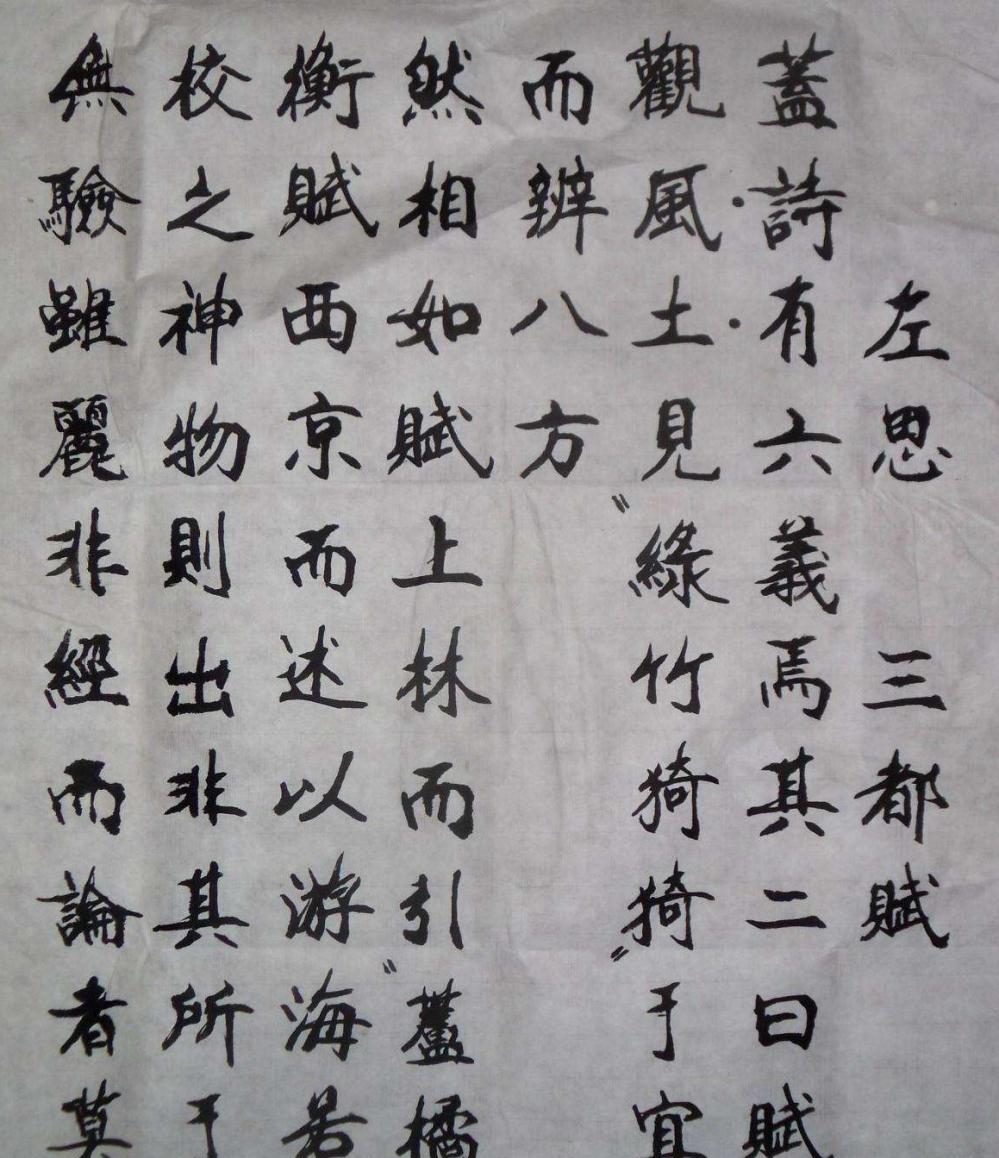 左思 三都賦
蓋詩有六義焉其二曰賦
觀風土見"綠竹猗猗"于宜
而辨八方
然相如賦上林而引"蘆橘
衡賦西京而述以游海若
校之神物則出非其所于
無驗雖麗非經而論者莫